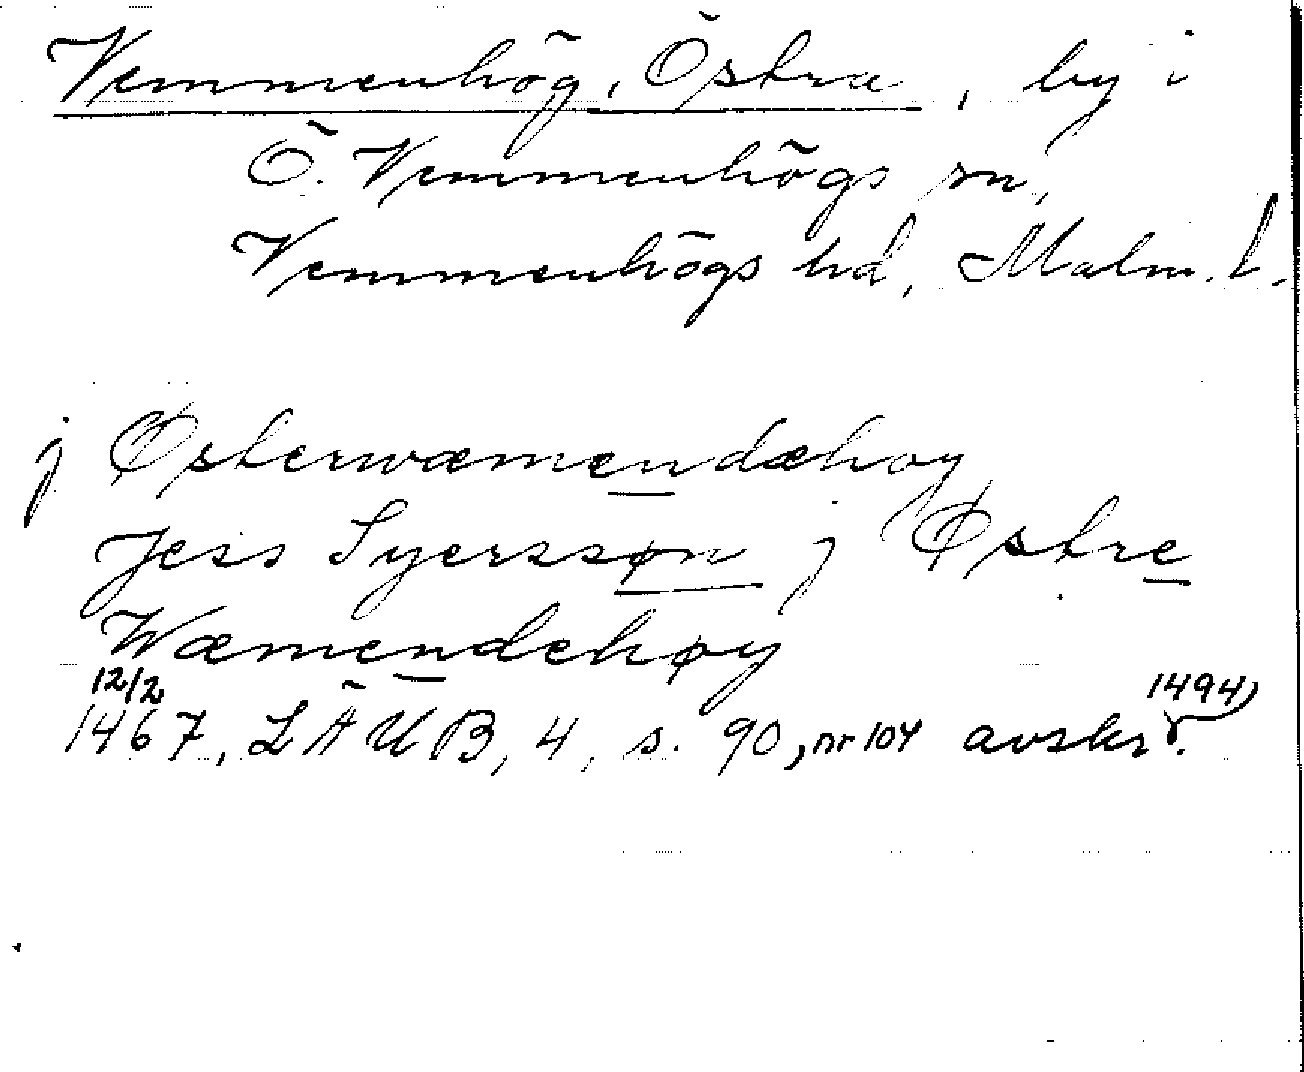 Vemmenhög, Östra, by i
Ö. Vemmenhögs sn,
Vemmenhögs hd, Malm. l.
j Østerwæmendæhøy
Jess Syerssøn j Østre
Wæmendehøy
12/2 1467, LÄUB, 4, s. 90, nr 104 avskr. 1494)